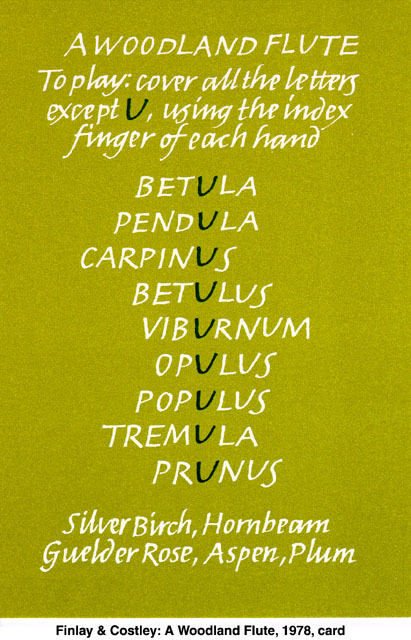 A WOODLAND FLUTE
To play: cover all the letters
except U, using the index
finger of each hand
BETULA
PENDULA
CARPINUS
BETULUS
VIBURNUM
OPULUS
POPULUS
TREMULA
PRUNUS
Silver Birch, Hornbeam
Guelder Rose, Aspen, Plum
Finlay & Costley: A Woodland Flute, 1978, card